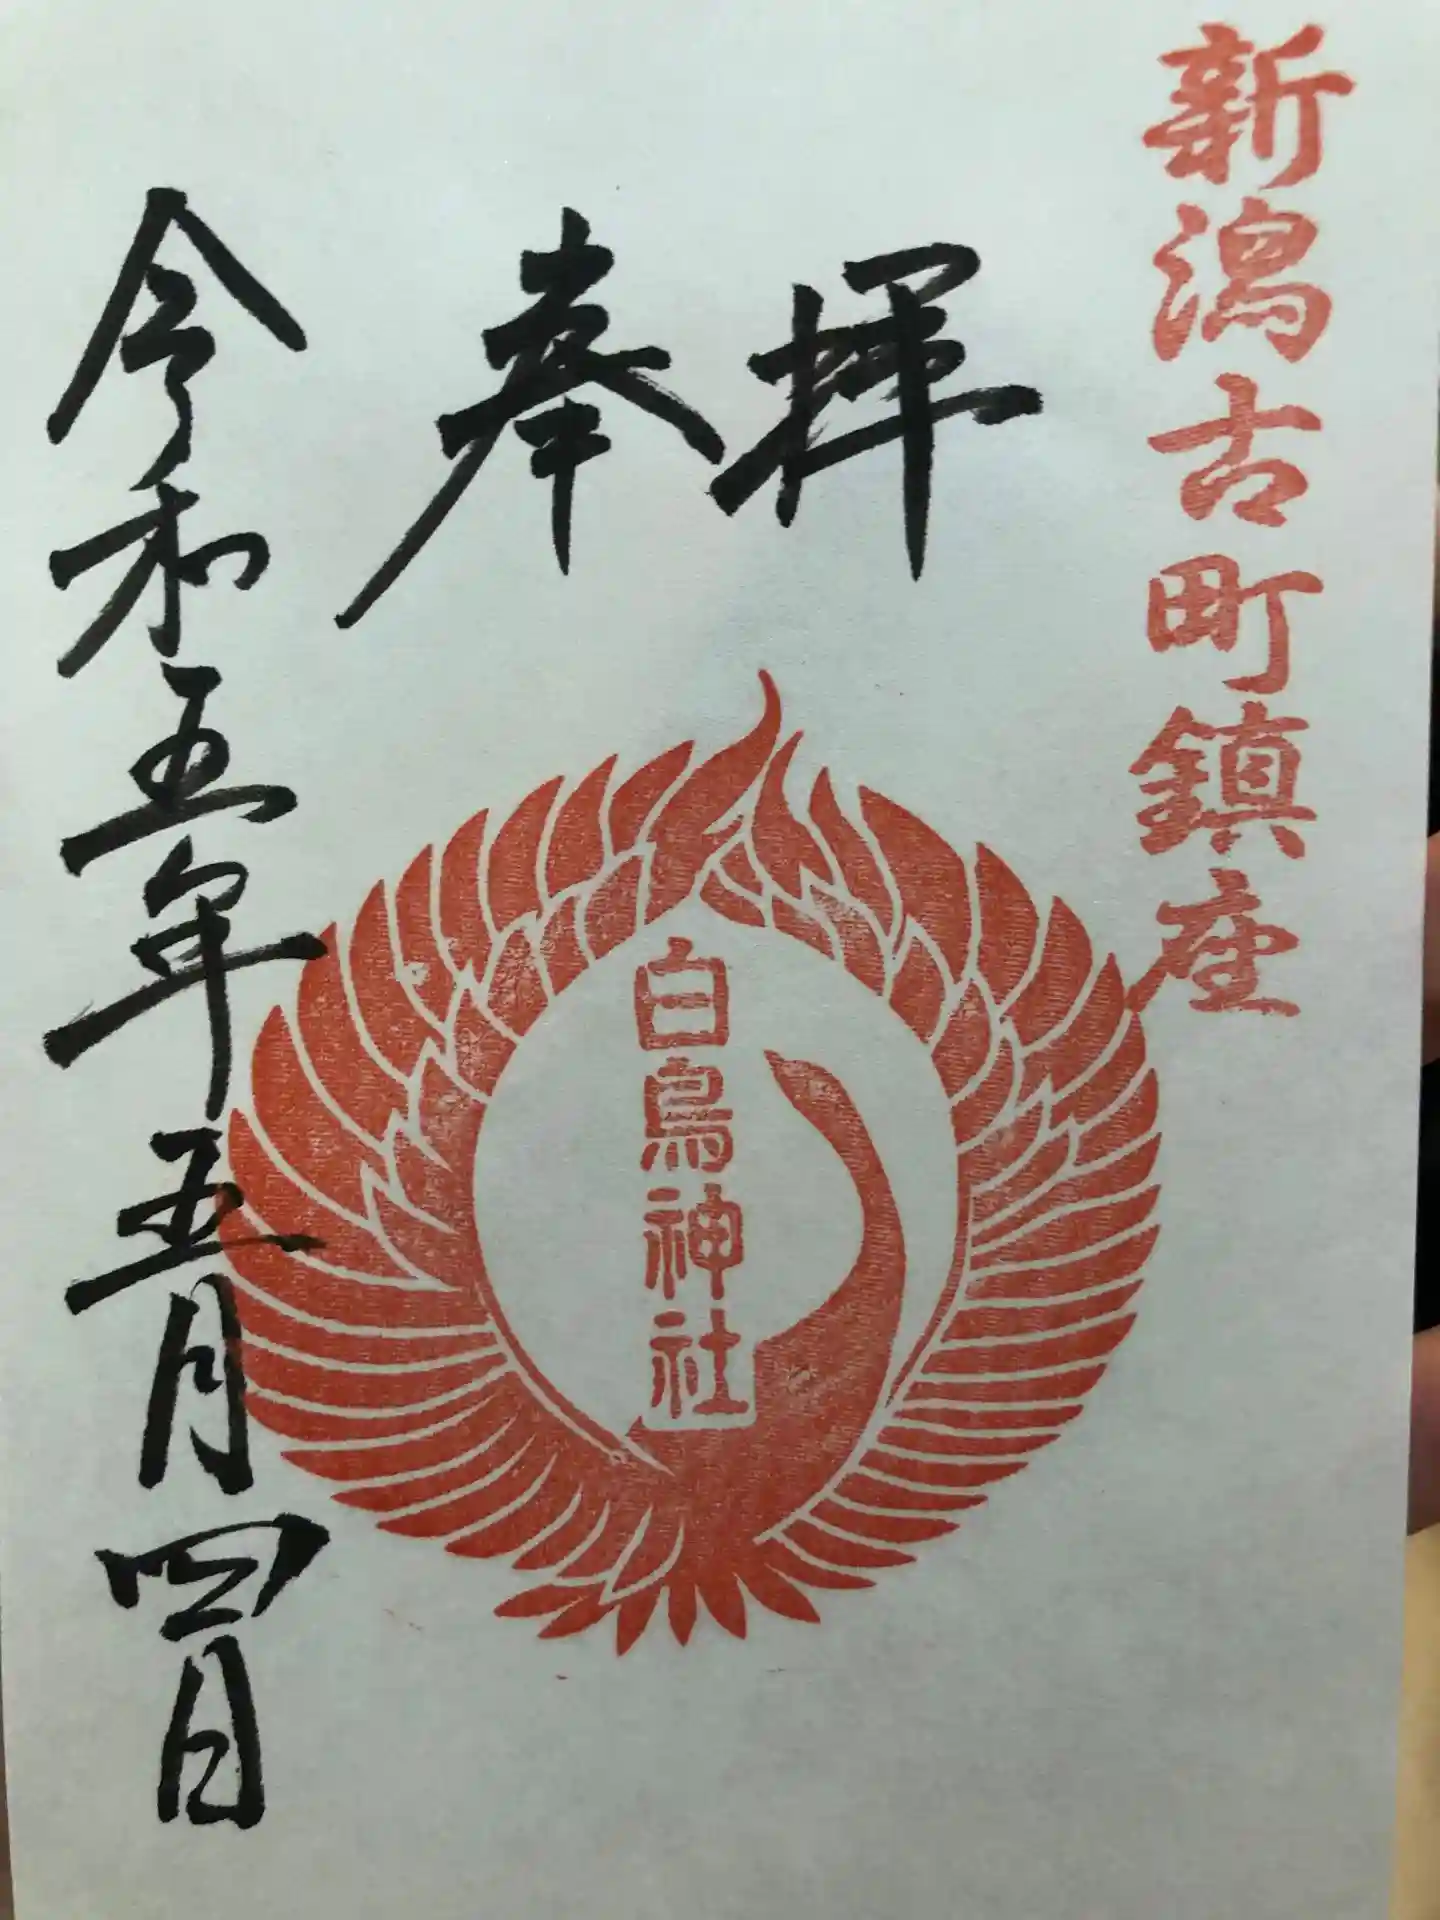 新潟古町鎮座
奉拝
白鳥神社
令和五年五月四日